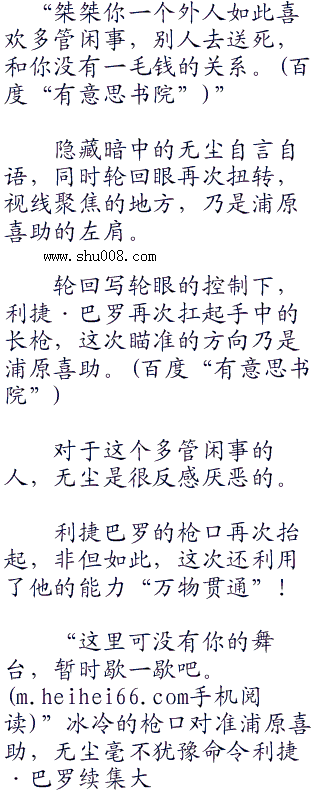 “桀桀你一个外人如此喜
欢多管闲事，别人去送死，
和你没有一毛钱的关系。(百
度“有意思书院”)”
隐藏暗中的无尘自言自
语，同时轮回眼再次扭转，
视线聚焦的地方，乃是浦原
喜助的左肩。
www.shu008.com
轮回写轮眼的控制下，
利捷·巴罗再次扛起手中的
长枪，这次瞄准的方向乃是
浦原喜助。(百度“有意思书
院”)
对于这个多管闲事的
人，无尘是很反感厌恶的。
利捷巴罗的枪口再次抬
起，非但如此，这次还利用
了他的能力“万物贯通”！
“这里可没有你的舞
台，暂时歇一歇吧。
(m.heihei66.com手机阅
读)”冰冷的枪口对准浦原喜
助，无尘毫不犹豫命令利捷
·巴罗续集大